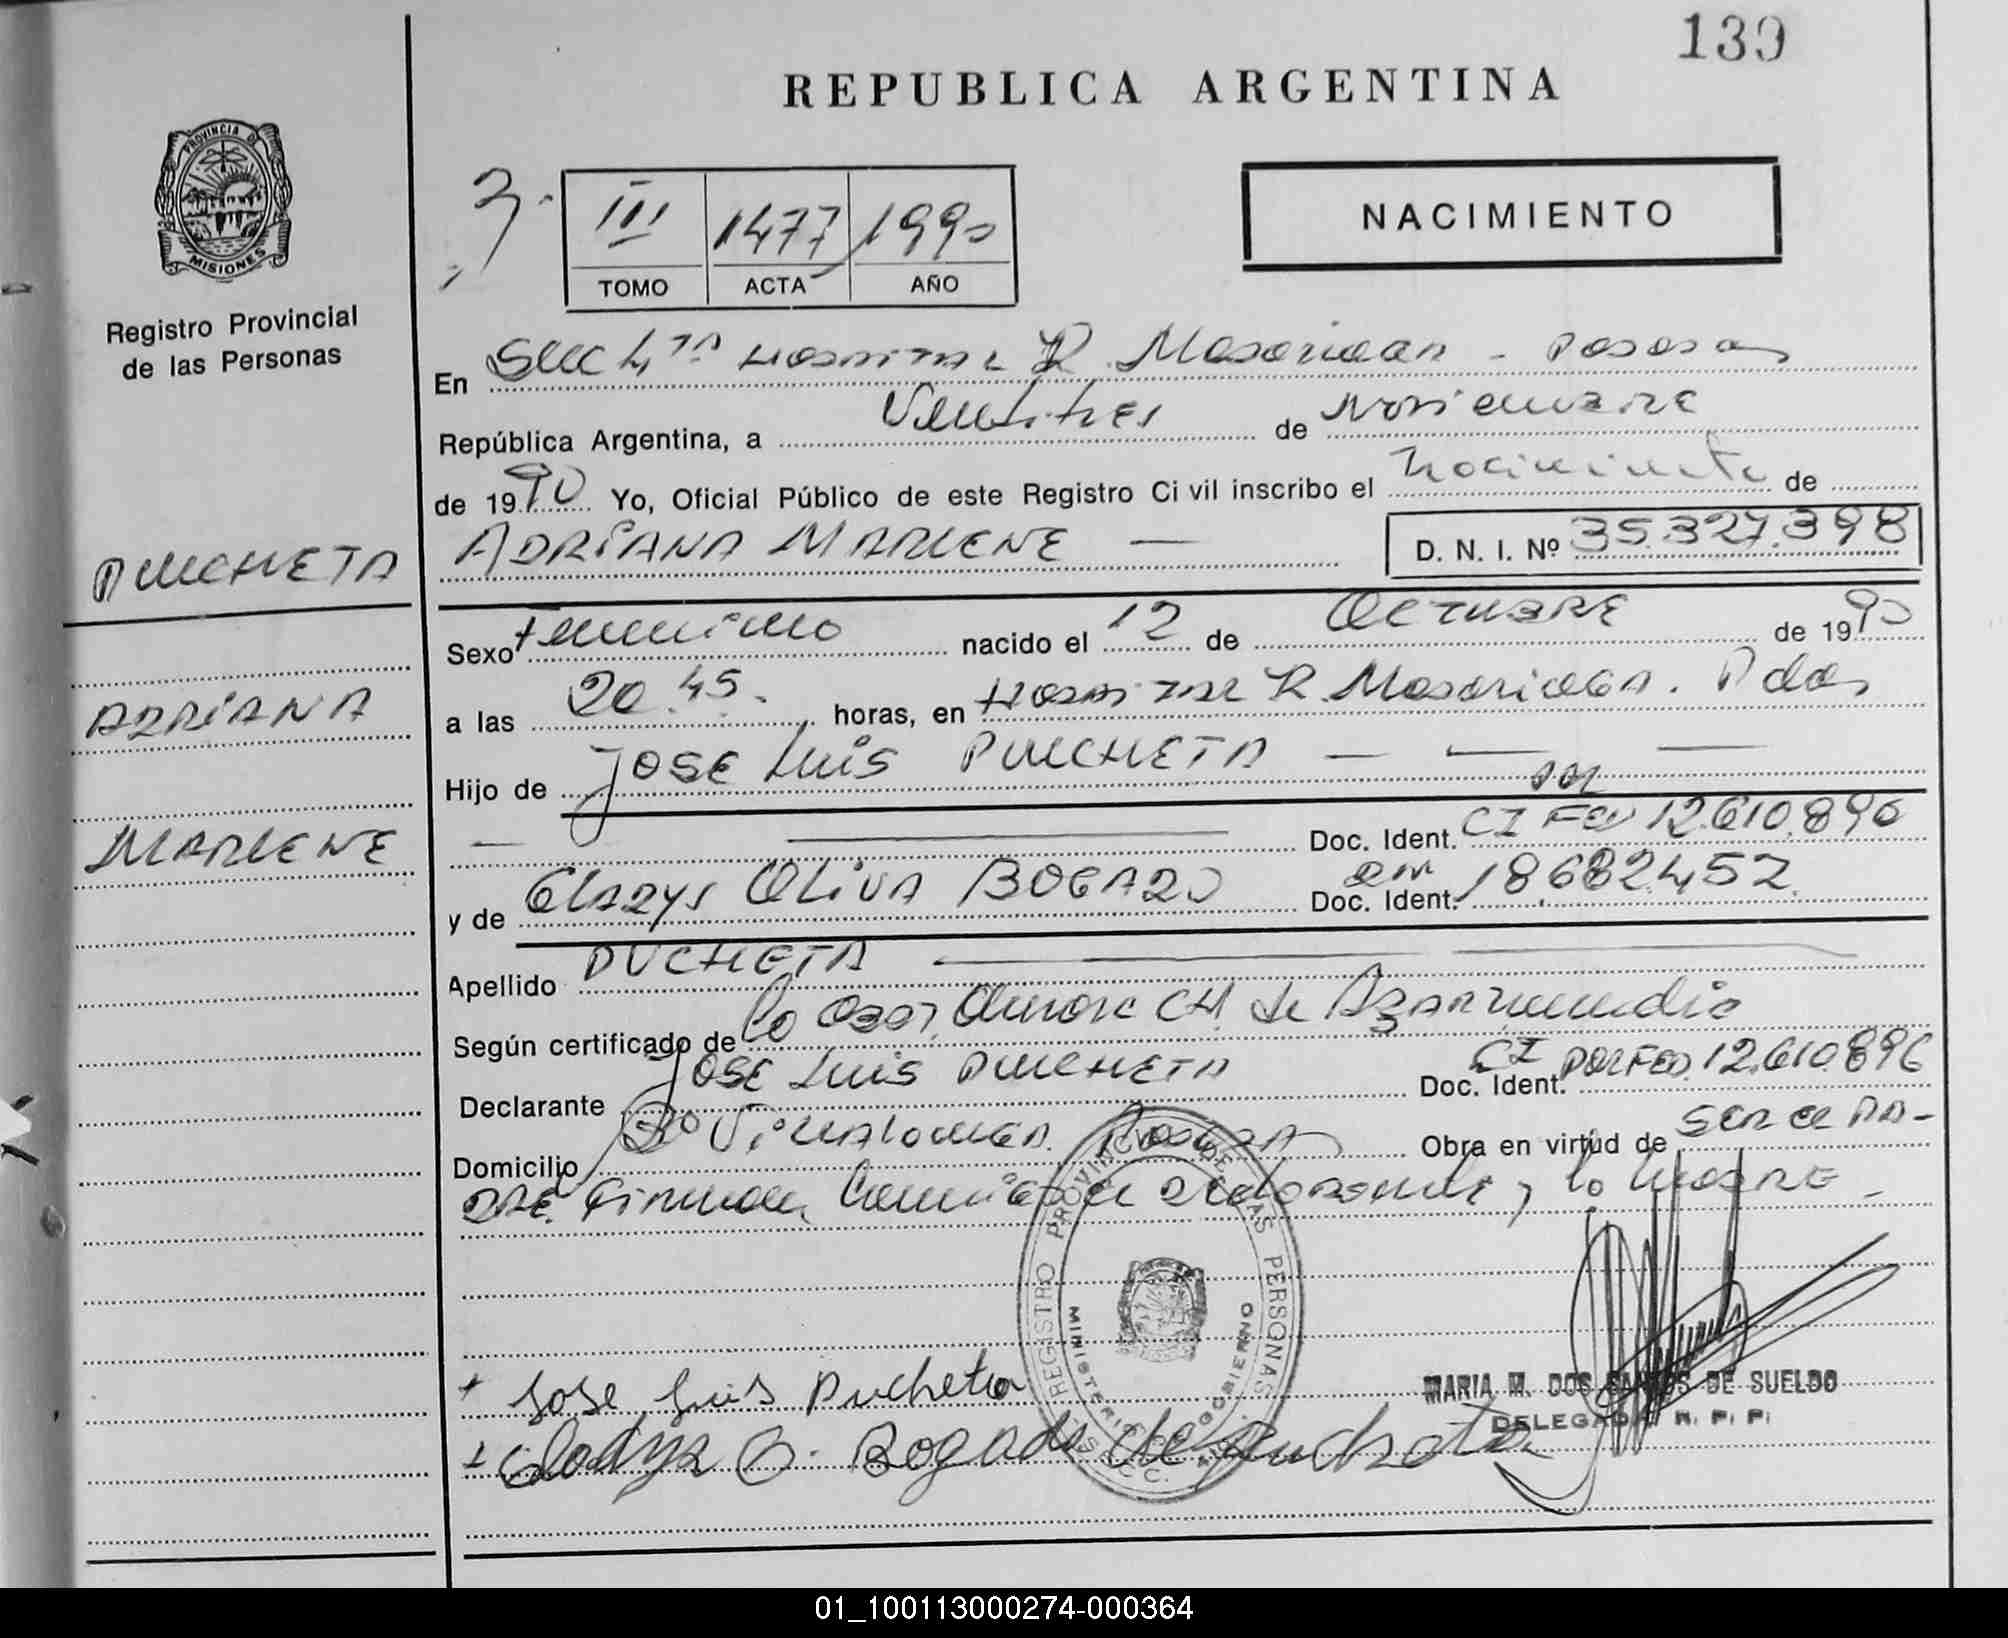 139
REPUBLICA ARGENTINA
PROVINCIA DE
MISIONES
Registro Provincial
de las Personas
3.
III 1477 1990
TOMO ACTA AÑO
NACIMIENTO
En Secc 4ta HOSPITAL R. Madariaga - Posadas
República Argentina, a Veintitres de Noviembre
de 1990 Yo, Oficial Público de este Registro Civil inscribo el Nacimiento de
ADRIANA MARLENE — D. N. I. Nº 35.327.398
PUCHETA
ADRIANA
MARLENE
Sexo Femenino nacido el 12 de OCTUBRE de 1990
a las 20.45. horas, en HOSPITAL R. Madariaga. Pdas
Hijo de JOSE Luis PUCHETA — — —
— — Doc. Ident. CI Pol Fed 12.610.896
y de Gladys OLIVA BOGADO Doc. Ident. DNI 18682.452.
Apellido PUCHETA —
Según certificado de la Obst. CH de
Declarante JOSE Luis PUCHETA Doc. Ident. CI POL FED. 12.610.896
Domicilio Bº Villalonga. Posadas Obra en virtud de SER EL PA-
DRE. Firman el declarante y la MADRE -
REGISTRO PROVINCIAL DE LAS PERSONAS
MINISTERIO DE GOBIERNO
+ Jose Luis Pucheta
MARIA M. DOS SANTOS DE SUELDO
DELEGADA R. P. P.
+ Gladys O. Bogado de Pucheta
01_100113000274-000364